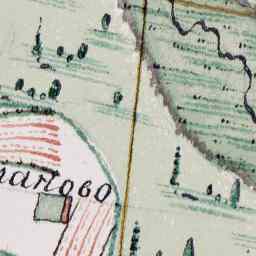 ланово